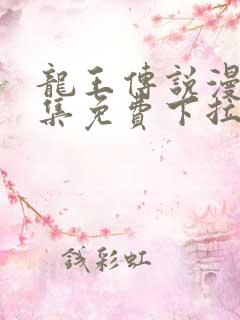 龍王傳說漫
集免費下拉
錢彩虹